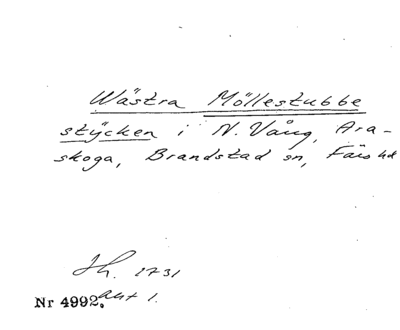 Wästra Möllestubbe
stycken i N. Vång, Ara-
skoga, Brandstad sn, Färs hd
Lh. 1731
Nr 4992. akt 1.